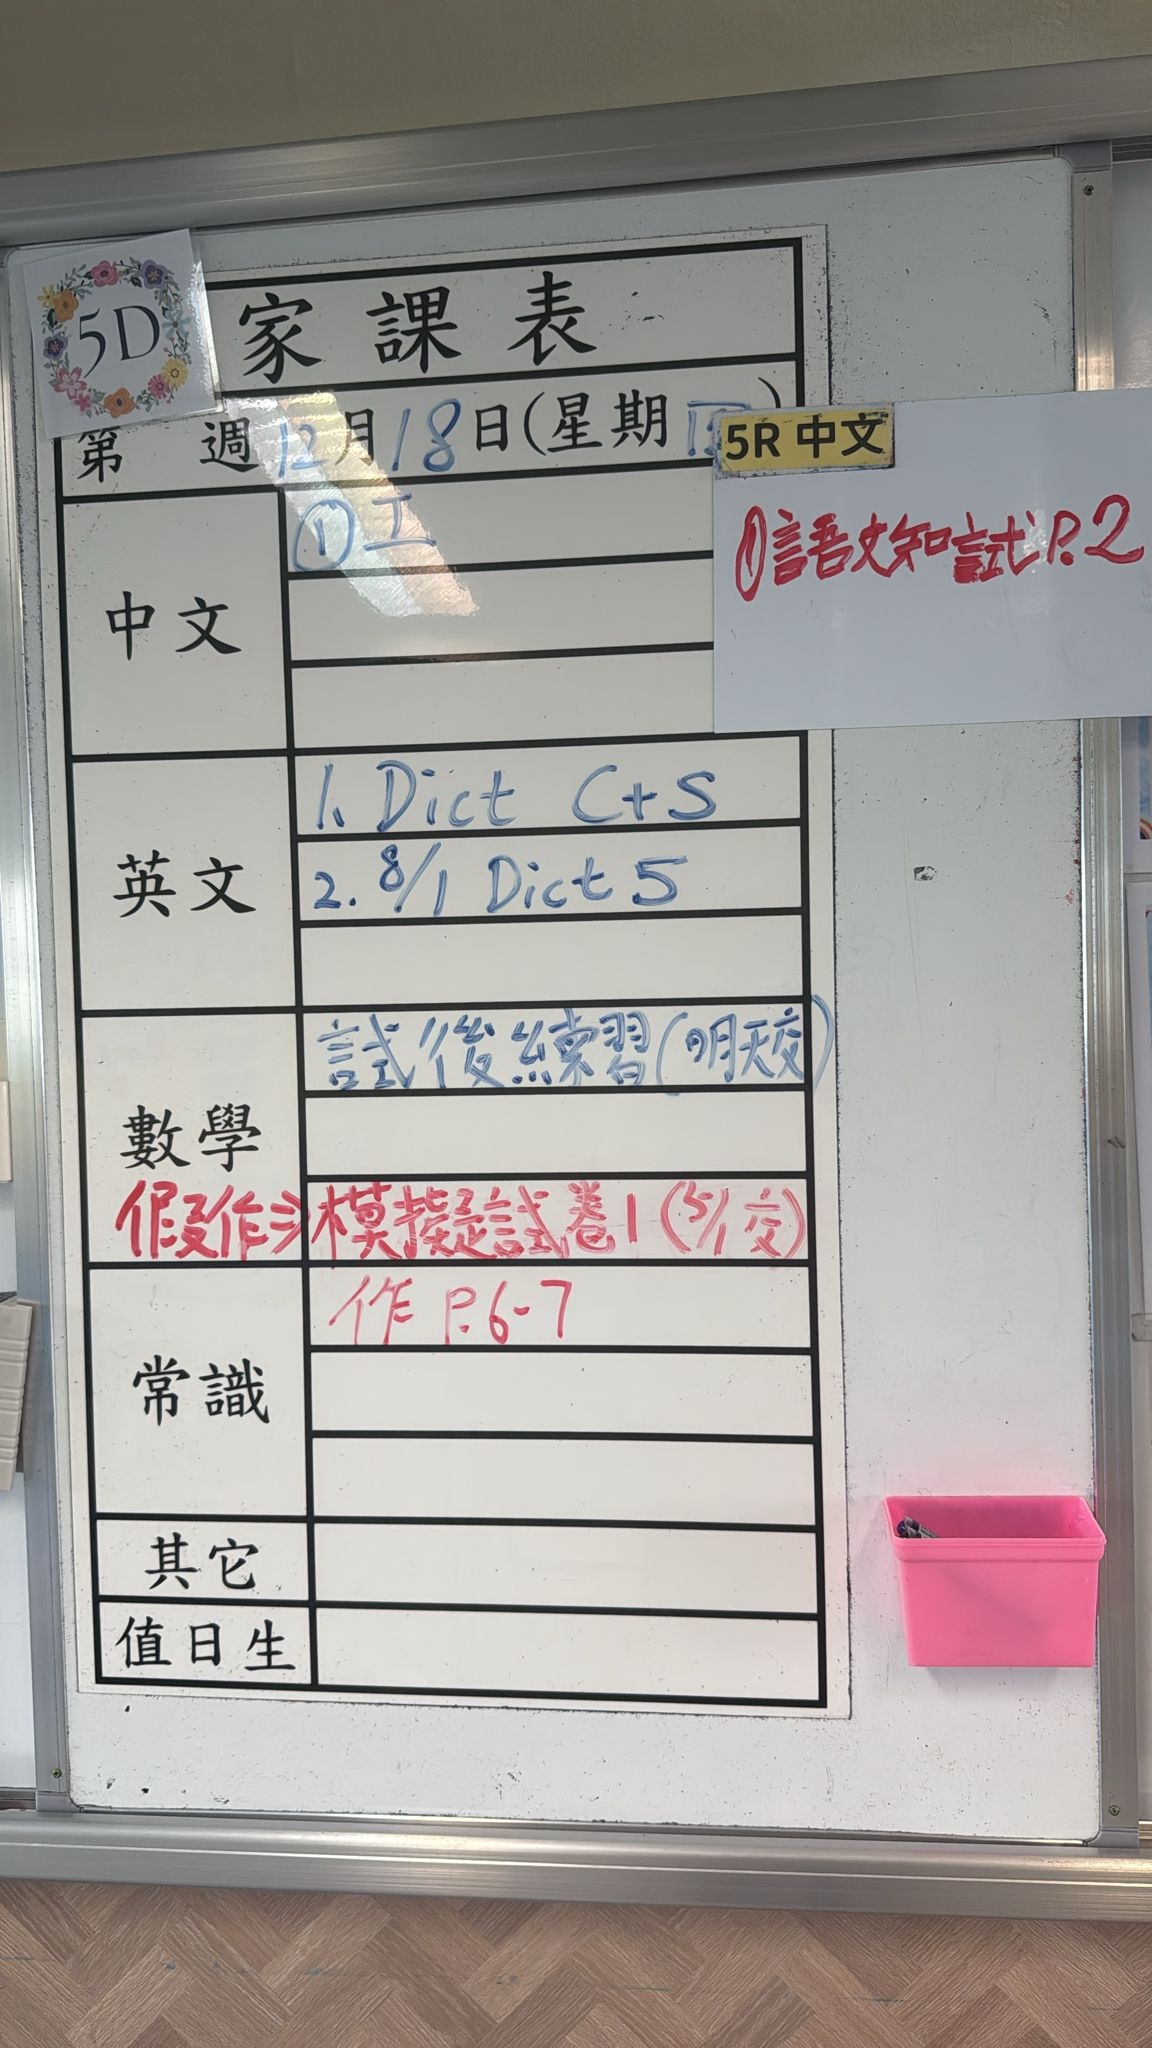 5D
家課表
第 週 12月18日(星期四)
5R 中文
中文
① 工
①語文知試 P.2
英文
1. Dict C+S
2. 8/1 Dict 5
數學
試後練習(明天交)
假作:模擬試卷1(5/1交)
常識
作 P.6-7
其它
值日生